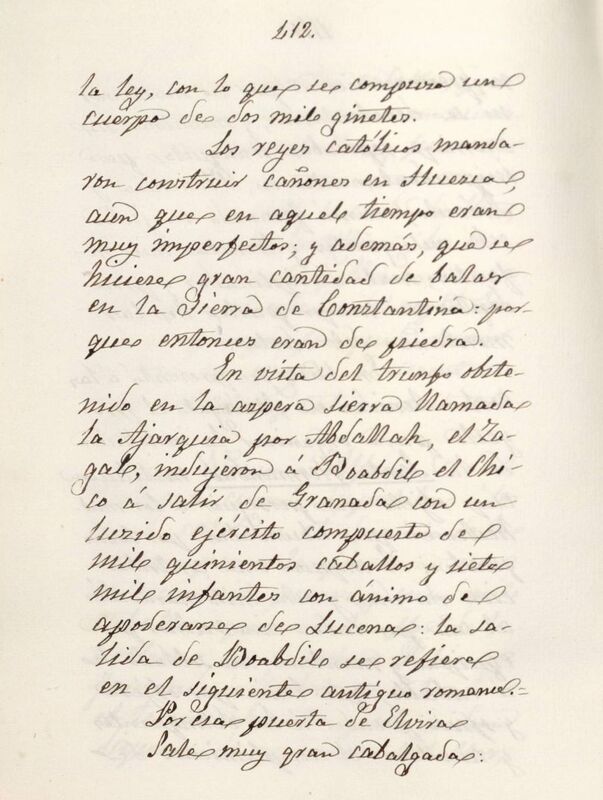 412.
la ley, con lo que se compuso un
cuerpo de dos mil ginetes.
Los reyes católicos manda-
ron construir cañones en Huesca,
aun que en aquel tiempo eran
muy imperfectos; y además, que se
hiciese gran cantidad de balas
en la Sierra de Constantina: por-
que entonces eran de piedra.
En vista del triunfo obte-
nido en la aspera sierra llamada
la Ajarquia por Abdallah, el Za-
gal, indujeron á Boabdil el Chi-
co á salir de Granada con un
luzido ejército compuesto de
mil quinientos caballos y siete
mil infantes con ánimo de
apoderarse de Lucena: la sa-
lida de Boabdil se refiere
en el siguiente antiguo romance.=
Por esa puerta de Elvira
Sale muy gran cabalgada: